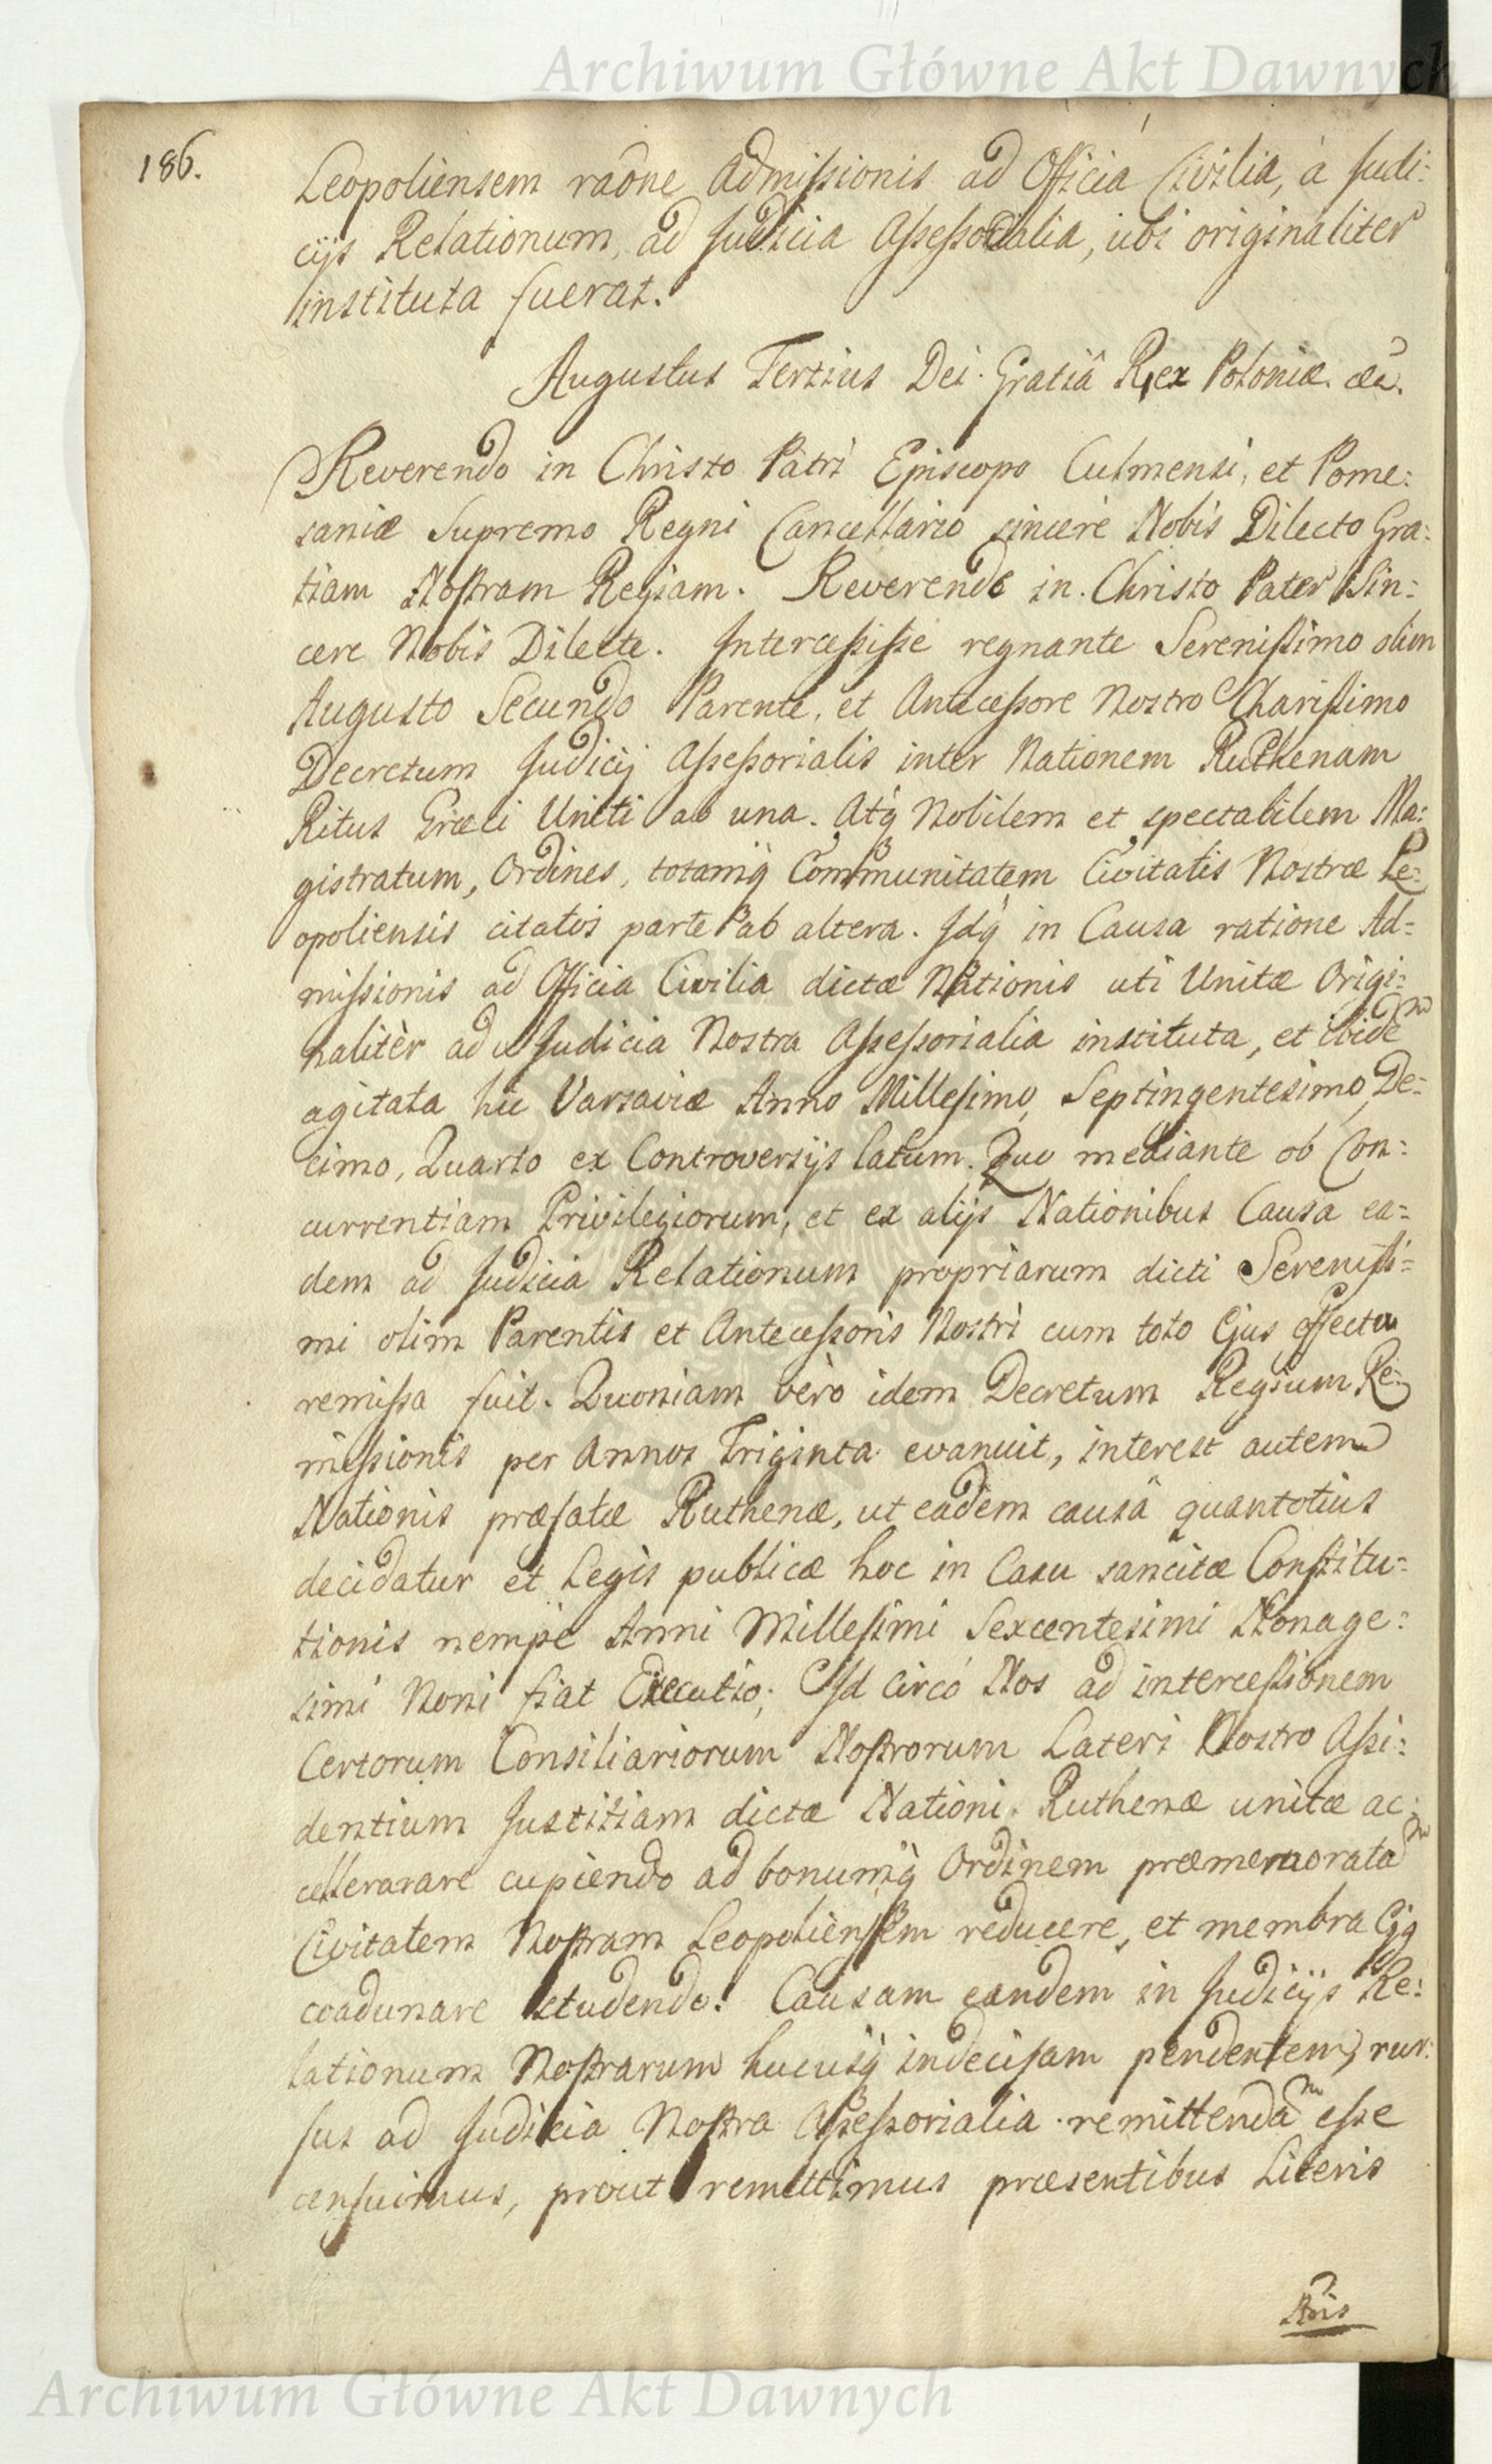 Archiwum Główne Akt Dawnych
186.
Leopoliensem raõne Admissionis ad Officia Civilia, à Judi:
cijs Relationum, ad Judicia Assessorialia, ubi originaliter
instituta fuerat.
Augustus Tertius Dei Gratiâ Rex Poloniæ. &c.
Reverendo in Christo Patri Episcopo Culmensi, et Pome:
saniæ Supremo Regni Cancellario sincerè Nobis Dilecto Gra:
tiam Nostram Regiam. Reverende in Christo Pater Sin:
cere Nobis Dilecte. Intercessisse regnante Serenissimo olim
Augusto Secundo Parente, et Antecessore Nostro Charissimo
Decretum Judicij Assessorialis inter Nationem Ruthenam
Ritus Græci Uniti ab una. Atq́ Nobilem et spectabilem Ma:
gistratum, Ordines, totamq́ Communitatem Civitatis Nostræ Le:
opoliensis citatos parte ab altera. Idq́ in Causa ratione Ad=
missionis ad Officia Civilia dictæ Nationis uti Unitæ Origi:
nalitèr ad Judicia Nostra Assessorialia instituta, et ibidem
agitata hic Varsaviæ Anno Millesimo, Septingentesimo, De:
cimo, Quarto ex Controversijs latum. Quo mediante ob Con:
currentiam Privilegiorum, et ex alijs Nationibus Causa ea=
dem ad Judicia Relationum propriarum dicti Serenissi=
mi olim Parentis et Antecessoris Nostri cum toto Ejus effectu
remissa fuit. Quoniam vèro idem Decretum Regium Re:
missionis per Annos Triginta evanuit, interest autem
Nationis præfatæ Ruthenæ, ut eadem causâ quantotius
decidatur et Legis publicæ hoc in Casu sancitæ Constitu=
tionis nempe Anni Millesimi Sexcentesimi Nonage:
simi Noni fiat Executio; Id circò Nos ad intercessionem
Certorum Consiliariorum Nostrorum Lateri Nostro Assi:
dentium Justitiam dictæ Nationi Ruthenæ unitæ ac:
cellerarare cupiendo ad bonumq́ Ordinem præmemoratam
Civitatem Nostram Leopoliensem reducere, et membra Ejq
coadunare studendo. Causam eandem in Judicijs Re:
lationum Nostrarum hucusq́ indecisam pendentem, rur:
sus ad Judicia Nostra Assessorialia remittendam esse
censuimus, prout remittimus præsentibus Literis
Nris
Archiwum Główne Akt Dawnych